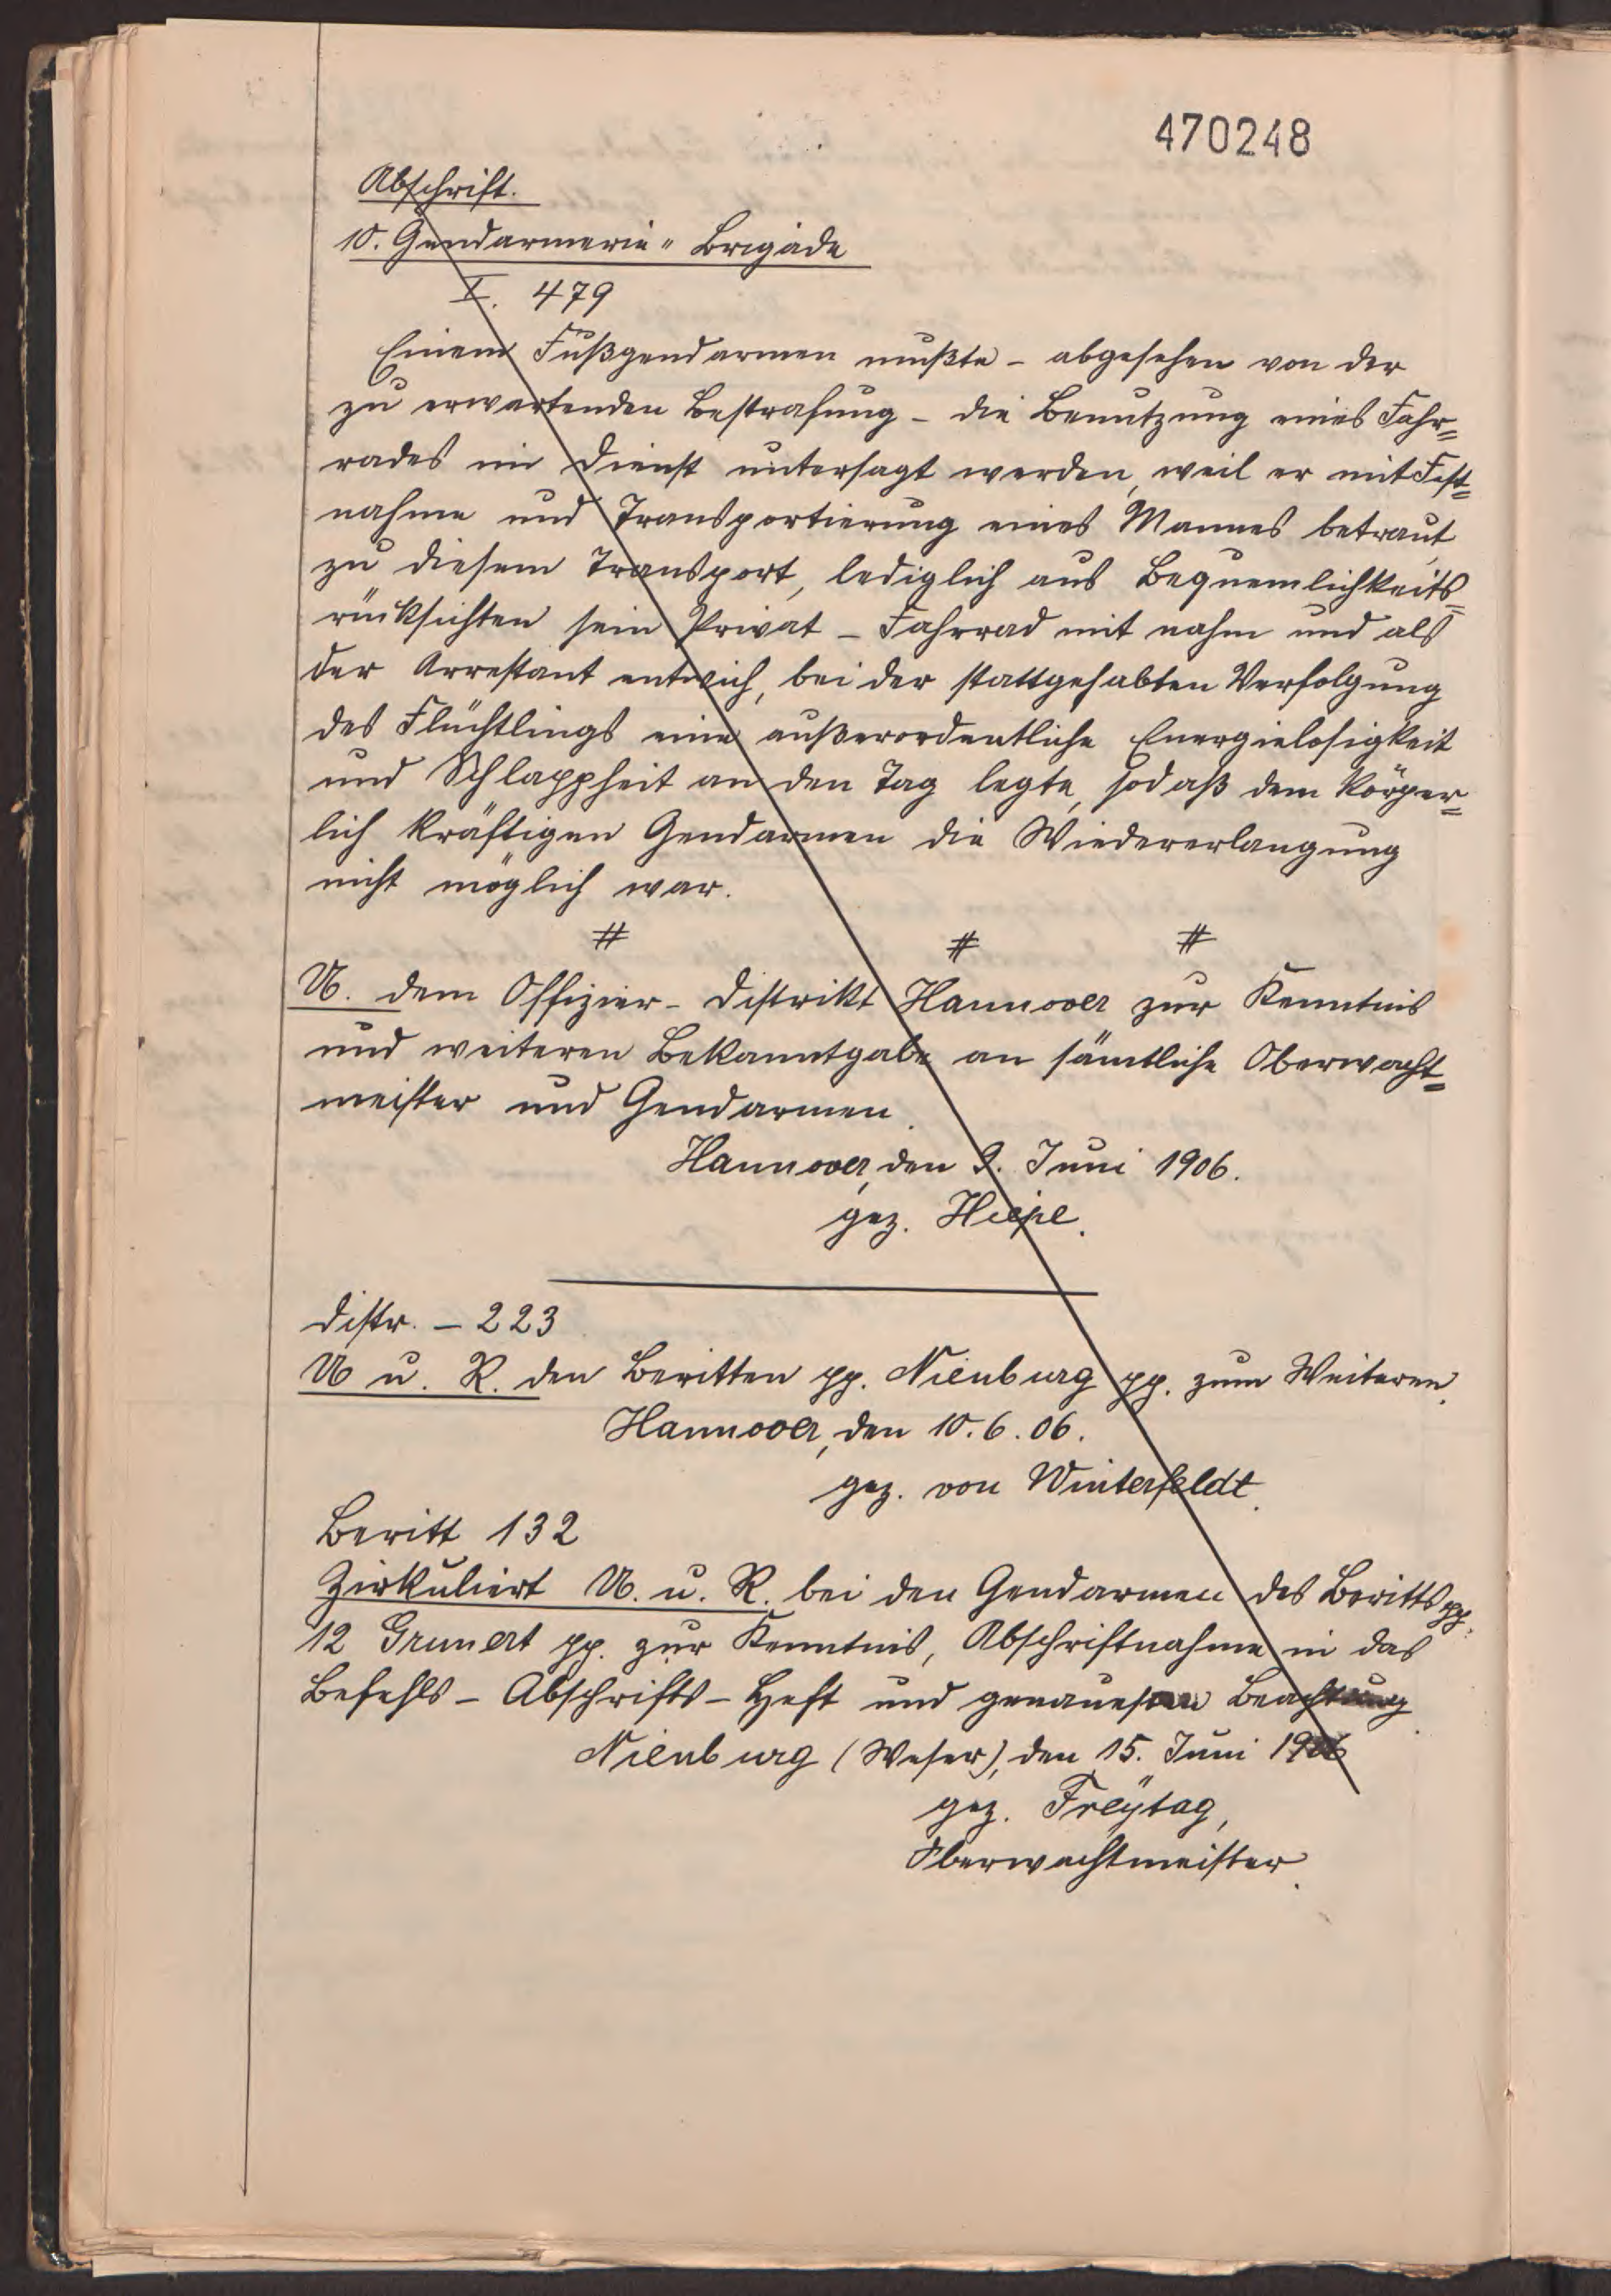 470248
Abschrift.
10. Gendarmerie-Brigade
I. 479
Einem Fußgendarmen mußte - abgesehen von der
zu erwartenden Bestrafung - die Benutzung eines Fahr=
rades im Dienst untersagt werden, weil er mit Fest=
nahme und Transportierung eines Mannes betraut,
zu diesem Transport, lediglich aus Bequemlichkeits=
rücksichten sein Privat-Fahrrad mit nahm und als
der Arrestant entwich, bei der stattgehabten Verfolgung
des Flüchtlings eine außerordentliche Energielosigkeit
und Schlappheit an den Tag legte, sodaß dem körper=
lich kräftigen Gendarmen die Wiedererlangung
nicht möglich war.
# # #
U. dem Offizier-Distrikt Hannover zur Kenntnis
und weiteren Bekanntgabe an sämtliche Oberwacht=
meister und Gendarmen.
Hannover, den 9. Juni 1906.
gez.
Distr. - 223
U u. R. den Beritten pp. Nienburg pp. zum Weiteren.
Hannover, den 10.6.06.
gez. von Winterfeldt.
Beritt 132
Zirkuliert U. u. R. bei den Gendarmen des Beritts pp.
12 Grunert pp. zur Kenntnis, Abschriftnahme in das
Befehls-Abschrifts-Heft und genauesten Beachtung.
Nienburg (Weser), den 15. Juni 1906
gez. Freÿtag,
Oberwachtmeister.